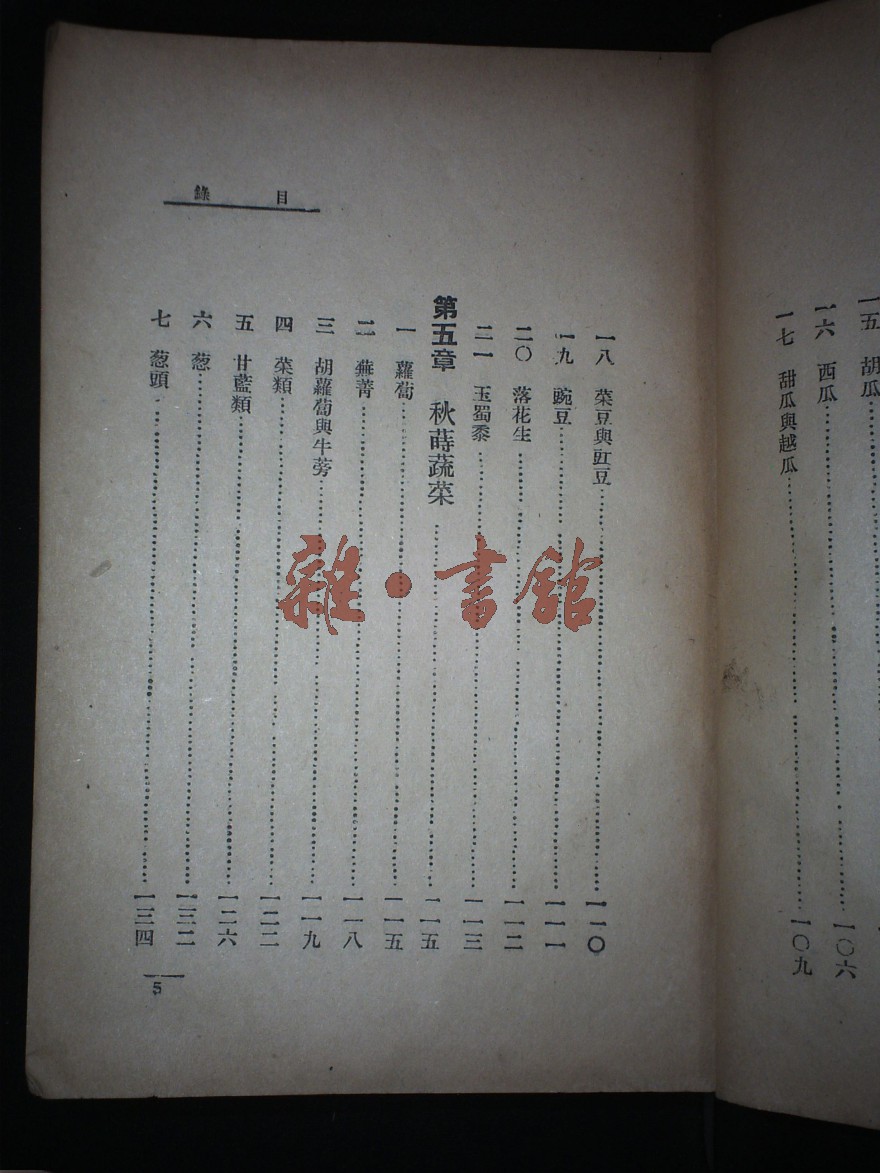 一五　胡瓜
一六　西瓜……一〇六
一七　甜瓜與越瓜……一〇九
目錄
一八　菜豆與豇豆……一一〇
一九　豌豆……一一一
二〇　落花生……一一二
二一　玉蜀黍……一一三
第五章　秋蒔蔬菜……一一五
一　蘿蔔……一一五
二　蕪菁……一一八
三　胡蘿蔔與牛蒡……一一九
四　菜類……一二二
五　甘藍類……一二六
六　葱……一三二
七　葱頭……一三四
5
雜·書館